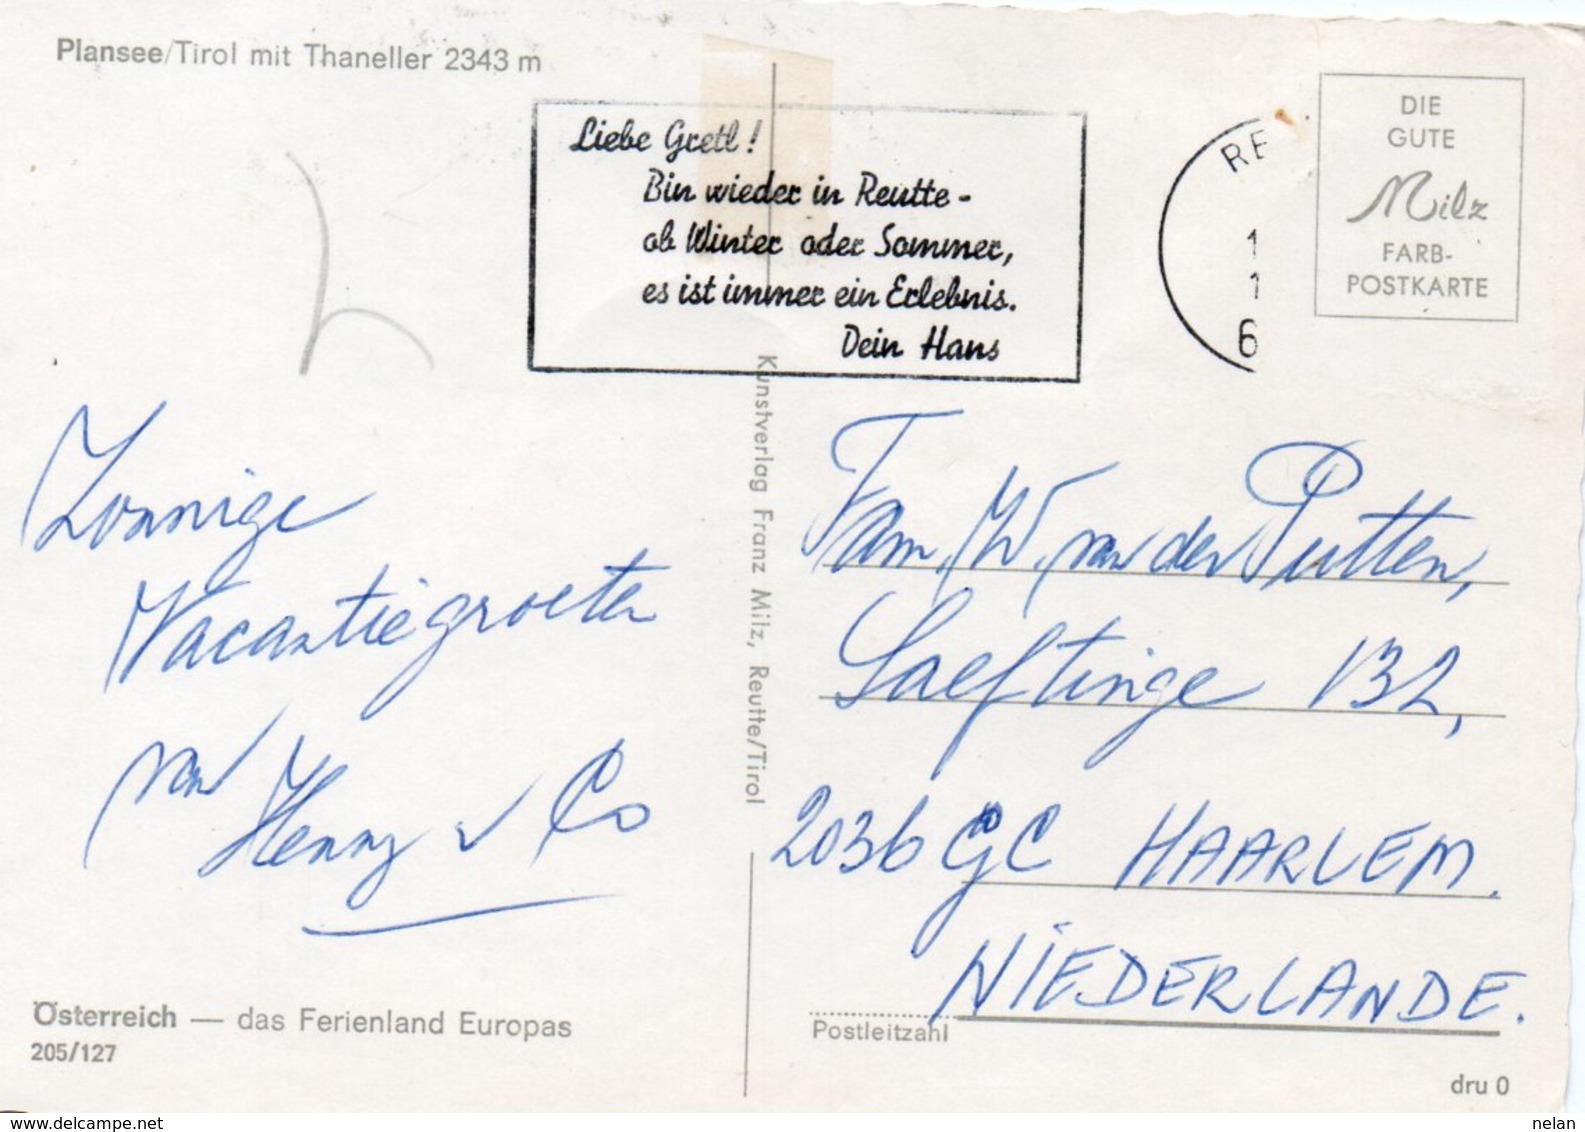 Plansee/Tirol mit Thaneller 2343 m
Liebe Gretl!
Bin wieder in Reutte -
ob Winter oder Sommer,
es ist immer ein Erlebnis.
Dein Hans
RE
1
1
6
DIE
GUTE
Milz
FARB-
POSTKARTE
Zonnige
Vacantiegroeten
van
Henny v Co
Kunstverlag Franz Milz, Reutte/Tirol
Fam. W. van der Putten,
Saeftinge 132,
2036 GC HAARLEM.
NIEDERLANDE.
Postleitzahl
Österreich — das Ferienland Europas
205/127
dru 0
delcampe.net
nelan